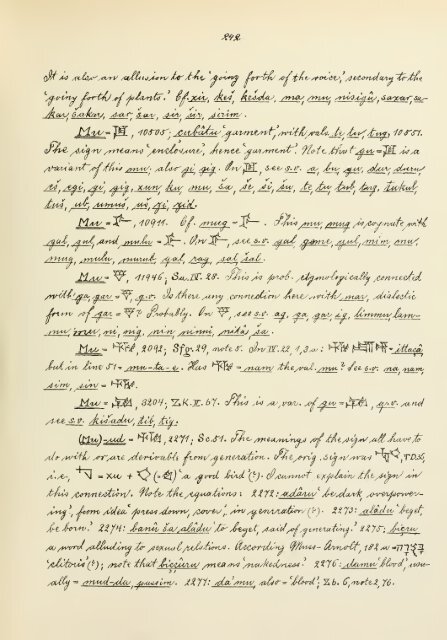 242.
It is also an allusion to the 'going forth of the voice,' secondary to the
'going forth of plants.' Cf. xir, keš, kešda, ma, mu, nisigû, saxar, sa-
kar, šakar, sar, šar, sir, šir, sirim.
Mu = 10505; cubâtu 'garment,' with vals. te, tu, tug, 10551.
The sign means 'enclosure,' hence 'garment.' Note that gu = is a
variant of this mu; also gi, gig. On see s.v. a, bu, gu, dur, duru
eš, egi, gi, gig, xun, ku, mu, ša, še, ši, šu, te, tu, tul, tug, tukul,
tuš, ub, umuš, uš, zi, zid.
Mu = 10911. Cf. mug = This mu, mug is cognate with
gal, gul, and mulu = On see s.v. gal, game, gul, min, mu,
mug, mulu, murub, rag, sal, šal.
Mu = 11946; Sa. IV. 28. This is prob. etymologically connected
with ga, gar = q.v. Is there any connection here with mar, dialectic
form of gar = ? Probably. On see s.v. ag, ga, gar, ig, limmu, lam-
mu, ni, nig, nin, ninni, ša.
Mu = 2092; Sfg. 29, note 5. In IV. 22, 1, 3a: = ittaçâ,
but in line 51 = mu-ta-e. Has = nam the val. mu? See s.v. na, nam,
sim, sin =
Mu = 3204; Z.K. II. 67. This is a var. of gu = q.v. and
see s.v. kišadu, tib, tig.
(Mu)-ud = 2271; Sc. 51. The meanings of the sign all have to
do with or are derivable from generation. The orig. sign was
i.e., = xu + 'a good bird' (?). I cannot explain the sign in
this connection. Note the equations: 2272: adâru 'be dark, overpower-
ing,' from idea 'press down, cover,' in generation (?). 2273: alâdu 'beget,
be born.' 2274: banû ša alâdu 'to beget, said of generating.' 2275: biçru
a word alluding to sexual relations. According Muss-Arnolt, 182 =
'clitoris' (?); note that biççuru means 'nakedness.' 2276: damu 'blood,' usu-
ally = mud-da passim. 2277: da'mu, also = 'blood'; Zb. 6, note 2, 76.